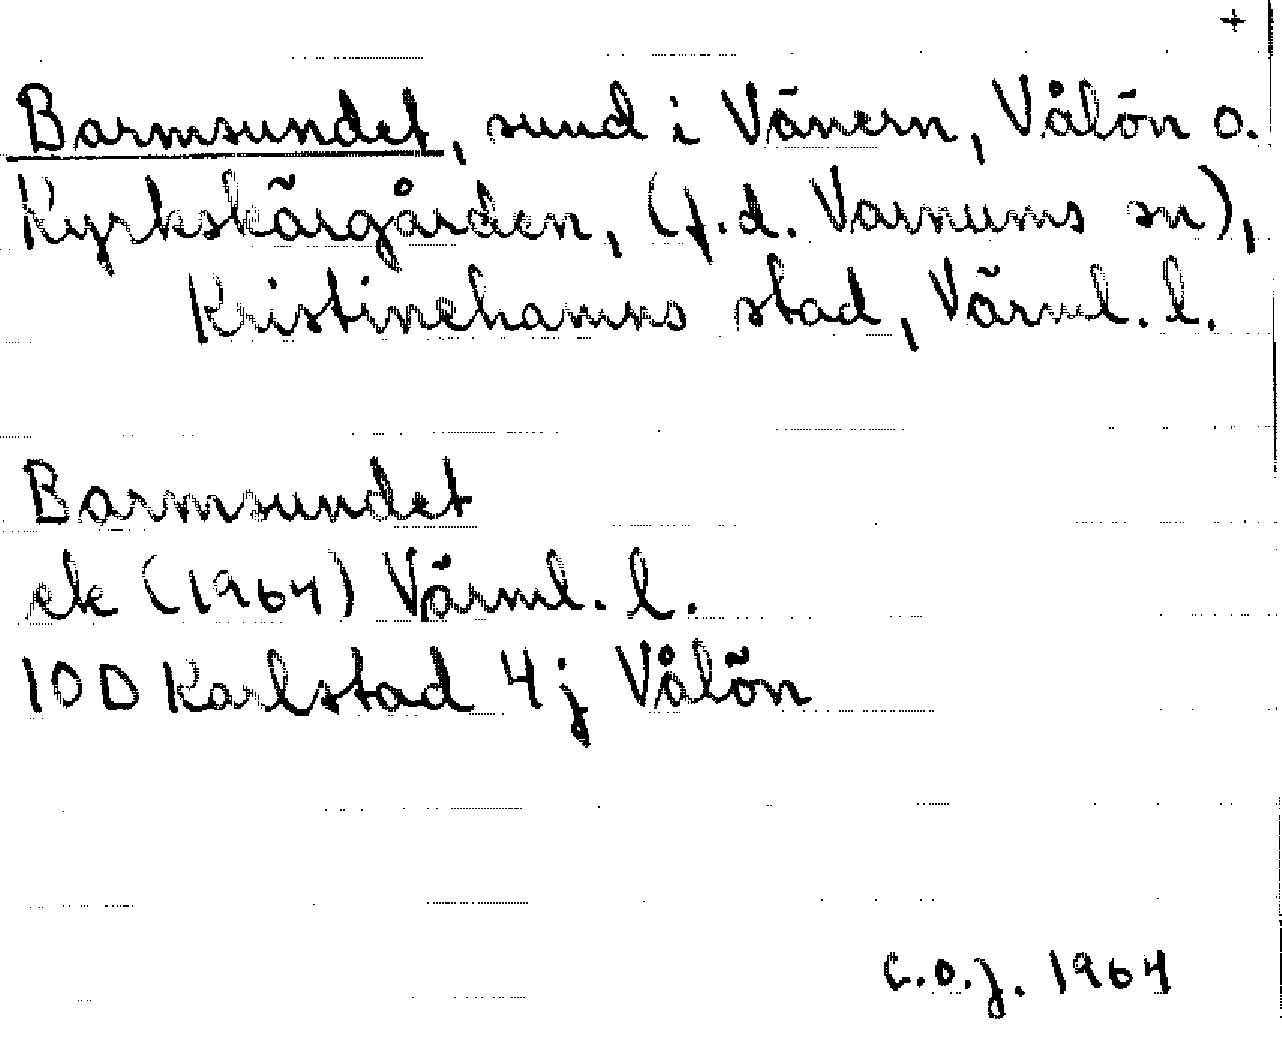 +
Barmsundet, sund i Vänern, Vålön o.
Kyrkskärgården, (f.d. Varnums sn),
Kristinehamns stad, Värml. l.
Barmsundet
ek (1964) Värml. l.
10D Karlstad 4j Vålön
C.O.J. 1964